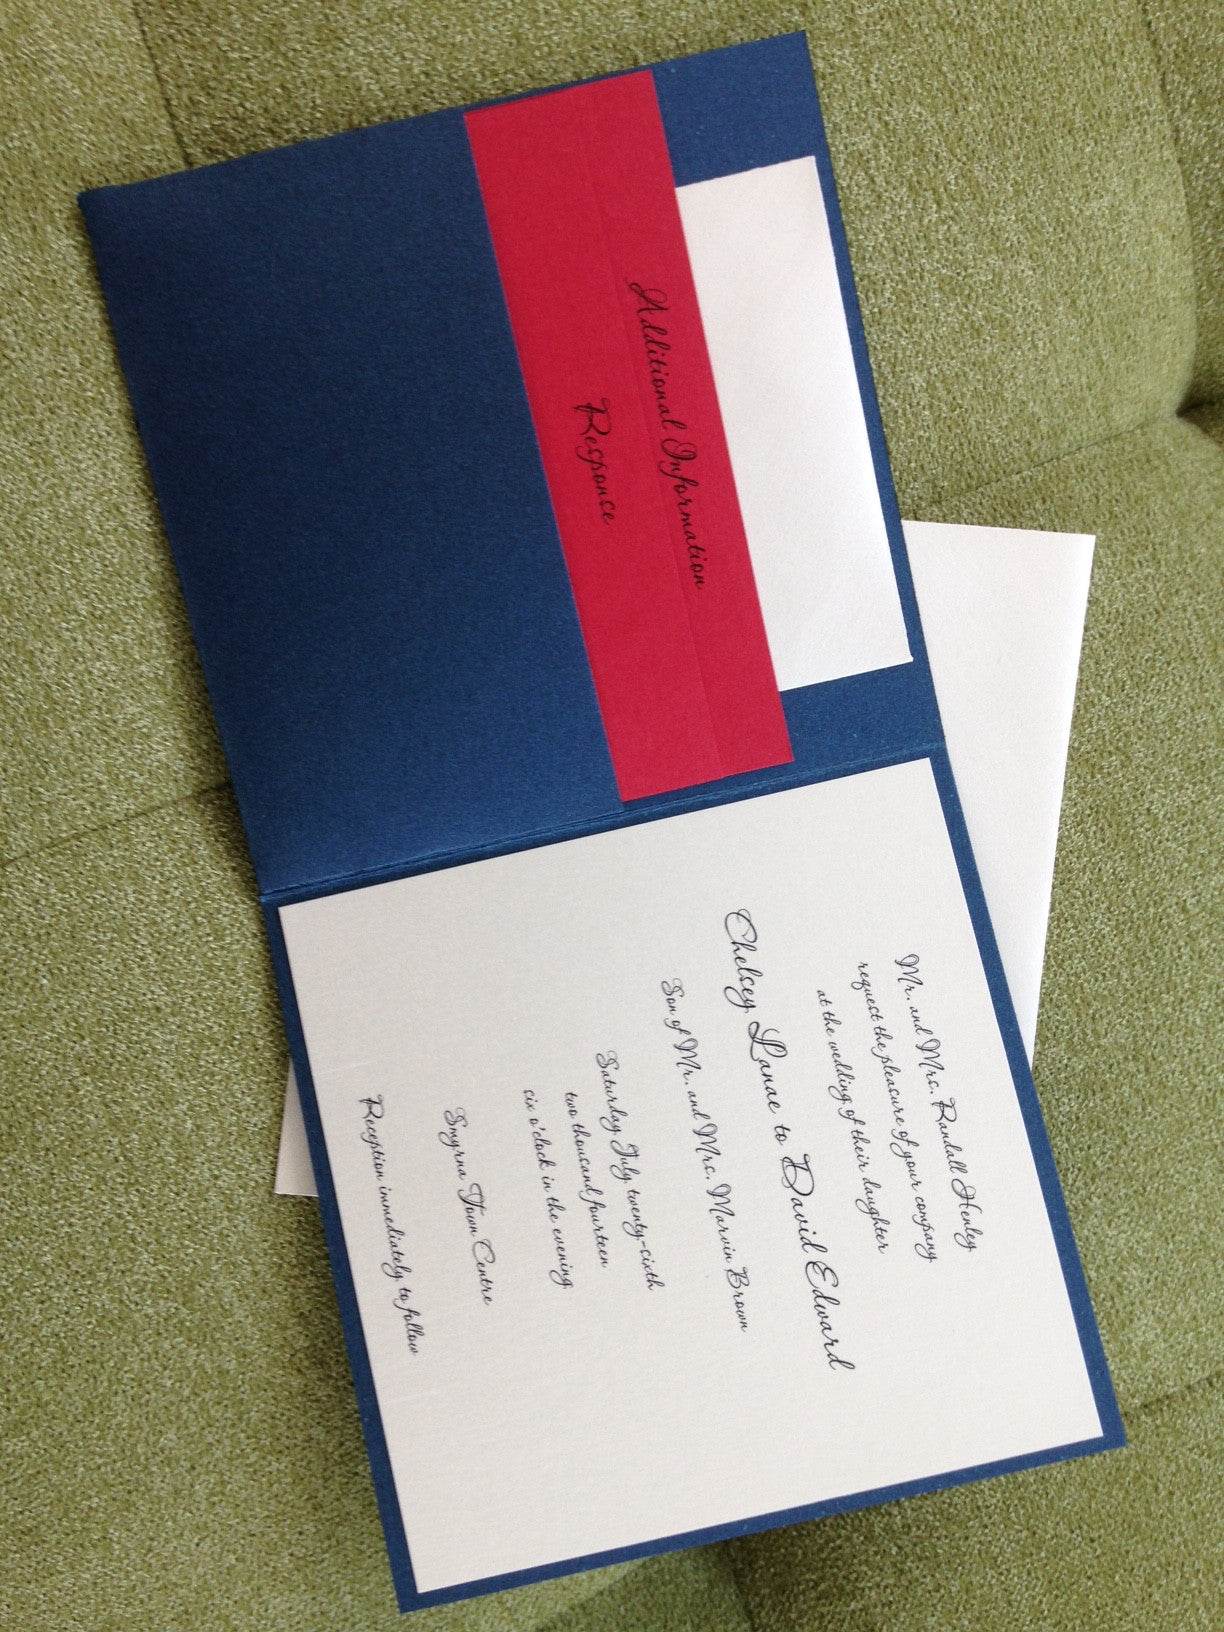 Additional Information
Responce
Mr. and Mrs. Randall Henley
request the pleasure of your company
at the wedding of their daughter
Chelsey Lanae to David Edward
Son of Mr. and Mrs. Marvin Brown
Saturday July, twenty-sixth
two thousand fourteen
six o'clock in the evening
Smyrna Town Centre
Reception immediately to follow